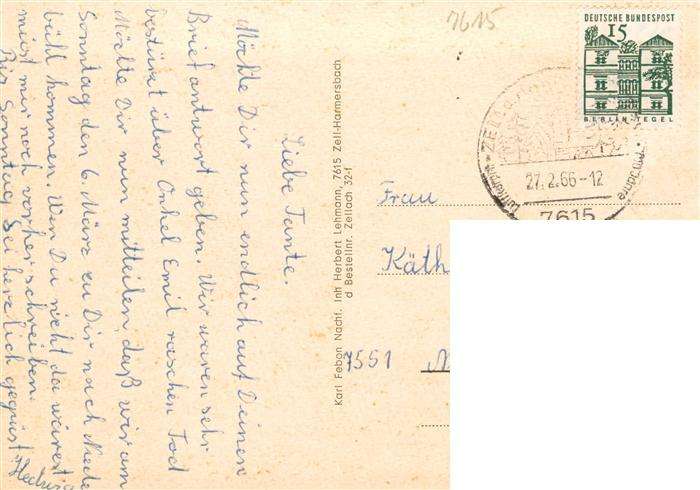 Liebe Tante.
Möchte Dir nun endlich auf Deinen
Brief antwort geben. Wir waren sehr
bestürzt über Onkel Emil raschen Tod
Möchte Dir nun mitteilen daß wir am
Sonntag den 6. März zu Dir nach Niede
bühl kommen. Wen Du nicht da wärest
müst mir noch vorher schreiben.
Bis Sonntag Sei herzlich gegrüst
Hedwig
Karl Febon Nachf. Inh Herbert Lehmann, 7615 Zell-Harmersbach
d Bestellnr. Zellach 32-f
7615
DEUTSCHE BUNDESPOST
15
BERLIN TEGEL
ZELL
27.2.66-12
7615
Frau
Käth
7551